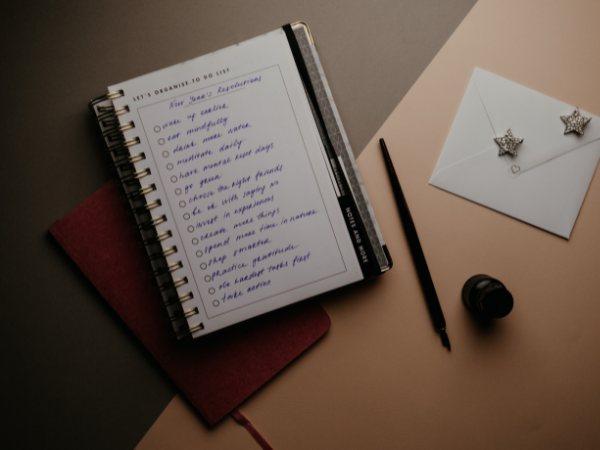 LET'S ORGANISE.TO DO LIST
New Year's Resolutions
wake up earlier
eat mindfully
drink more water
meditate daily
have mental rest days
go green
choose the right friends
be ok with saying no
invest in experiences
create more things
spend more time in nature
shop smarter
practice gratitude
do hardest tasks first
take action